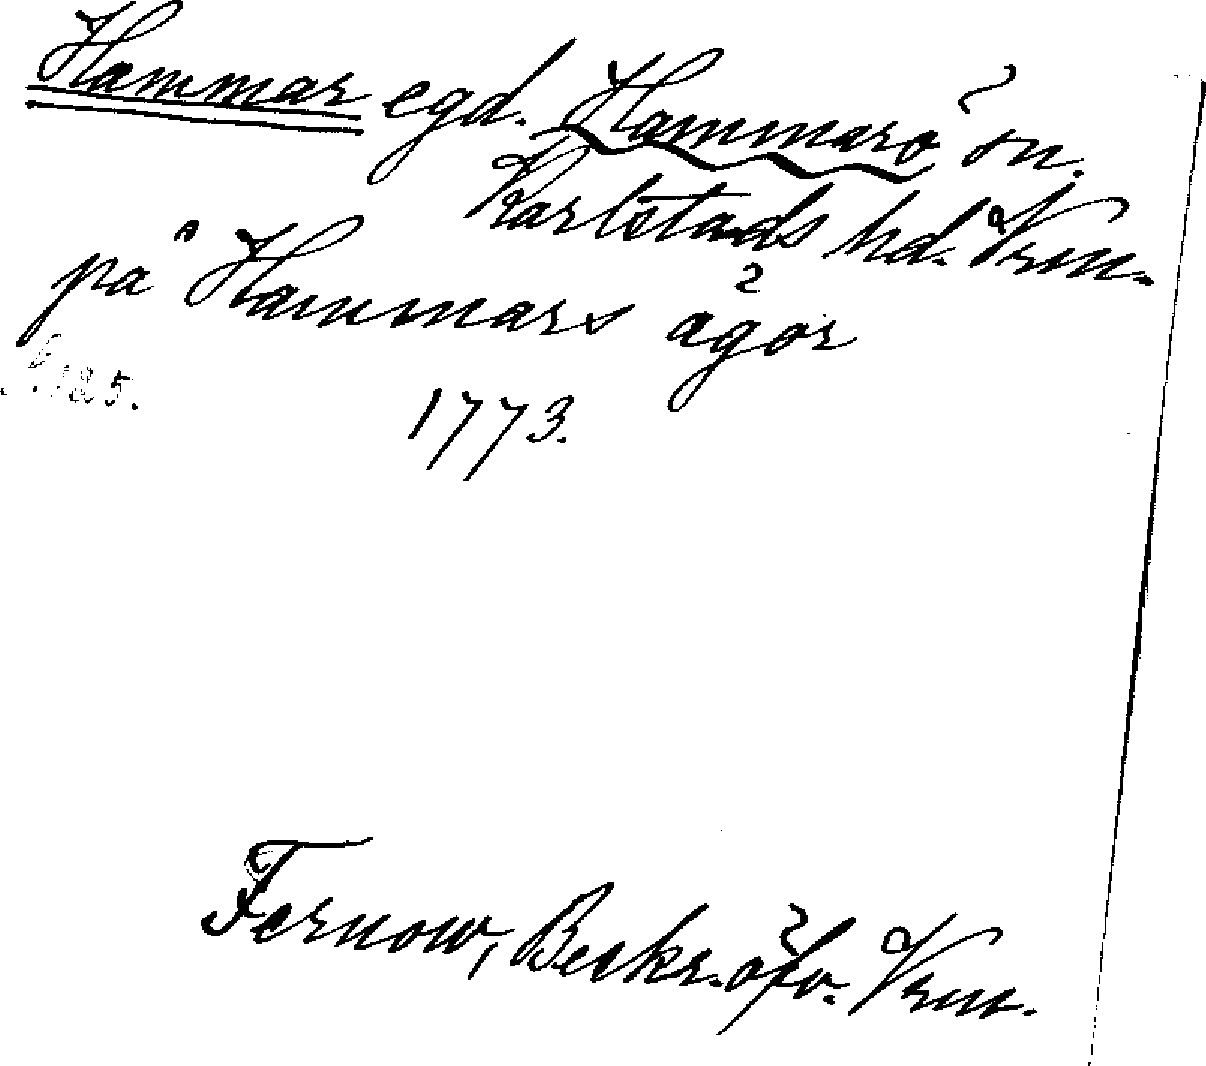 Hammar egd. Hammarö sn.
Karlstads hd. Vrm.
på Hammars ägor
1773.
Fernow, Beskr. öfv. Vrm.